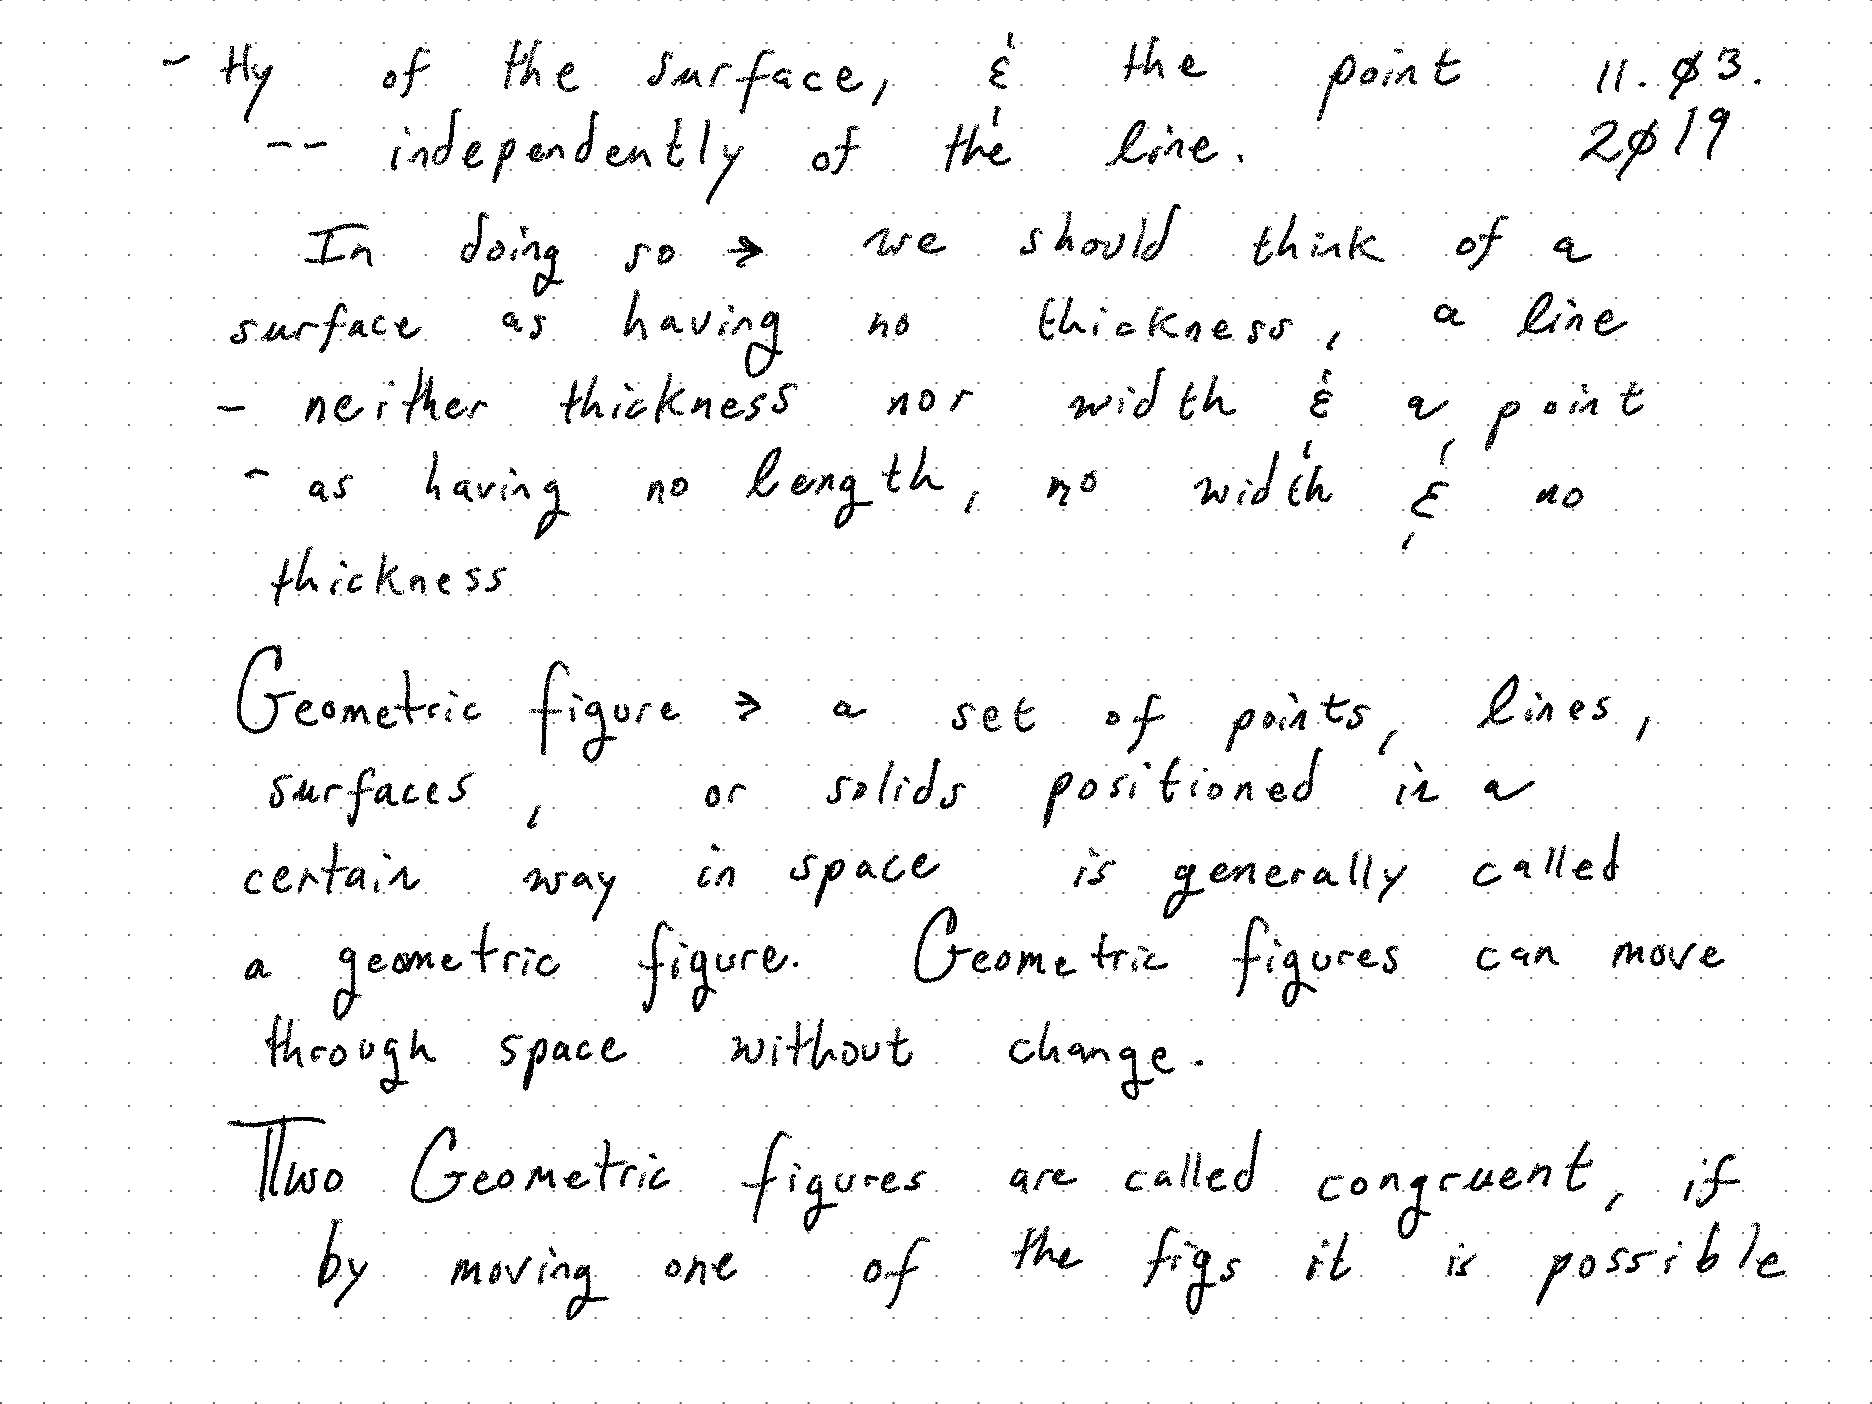 - tly of the surface, & the point 11. Ø3.
-- independently of the line. 2Ø19
In doing so → we should think of a
surface as having no thickness, a line
- neither thickness nor width & a point
- as having no length, no width & no
thickness
Geometric figure → a set of points, lines,
surfaces, or solids positioned in a
certain way in space is generally called
a geometric figure. Geometric figures can move
through space without change.
Two Geometric figures are called congruent, if
by moving one of the figs it is possible